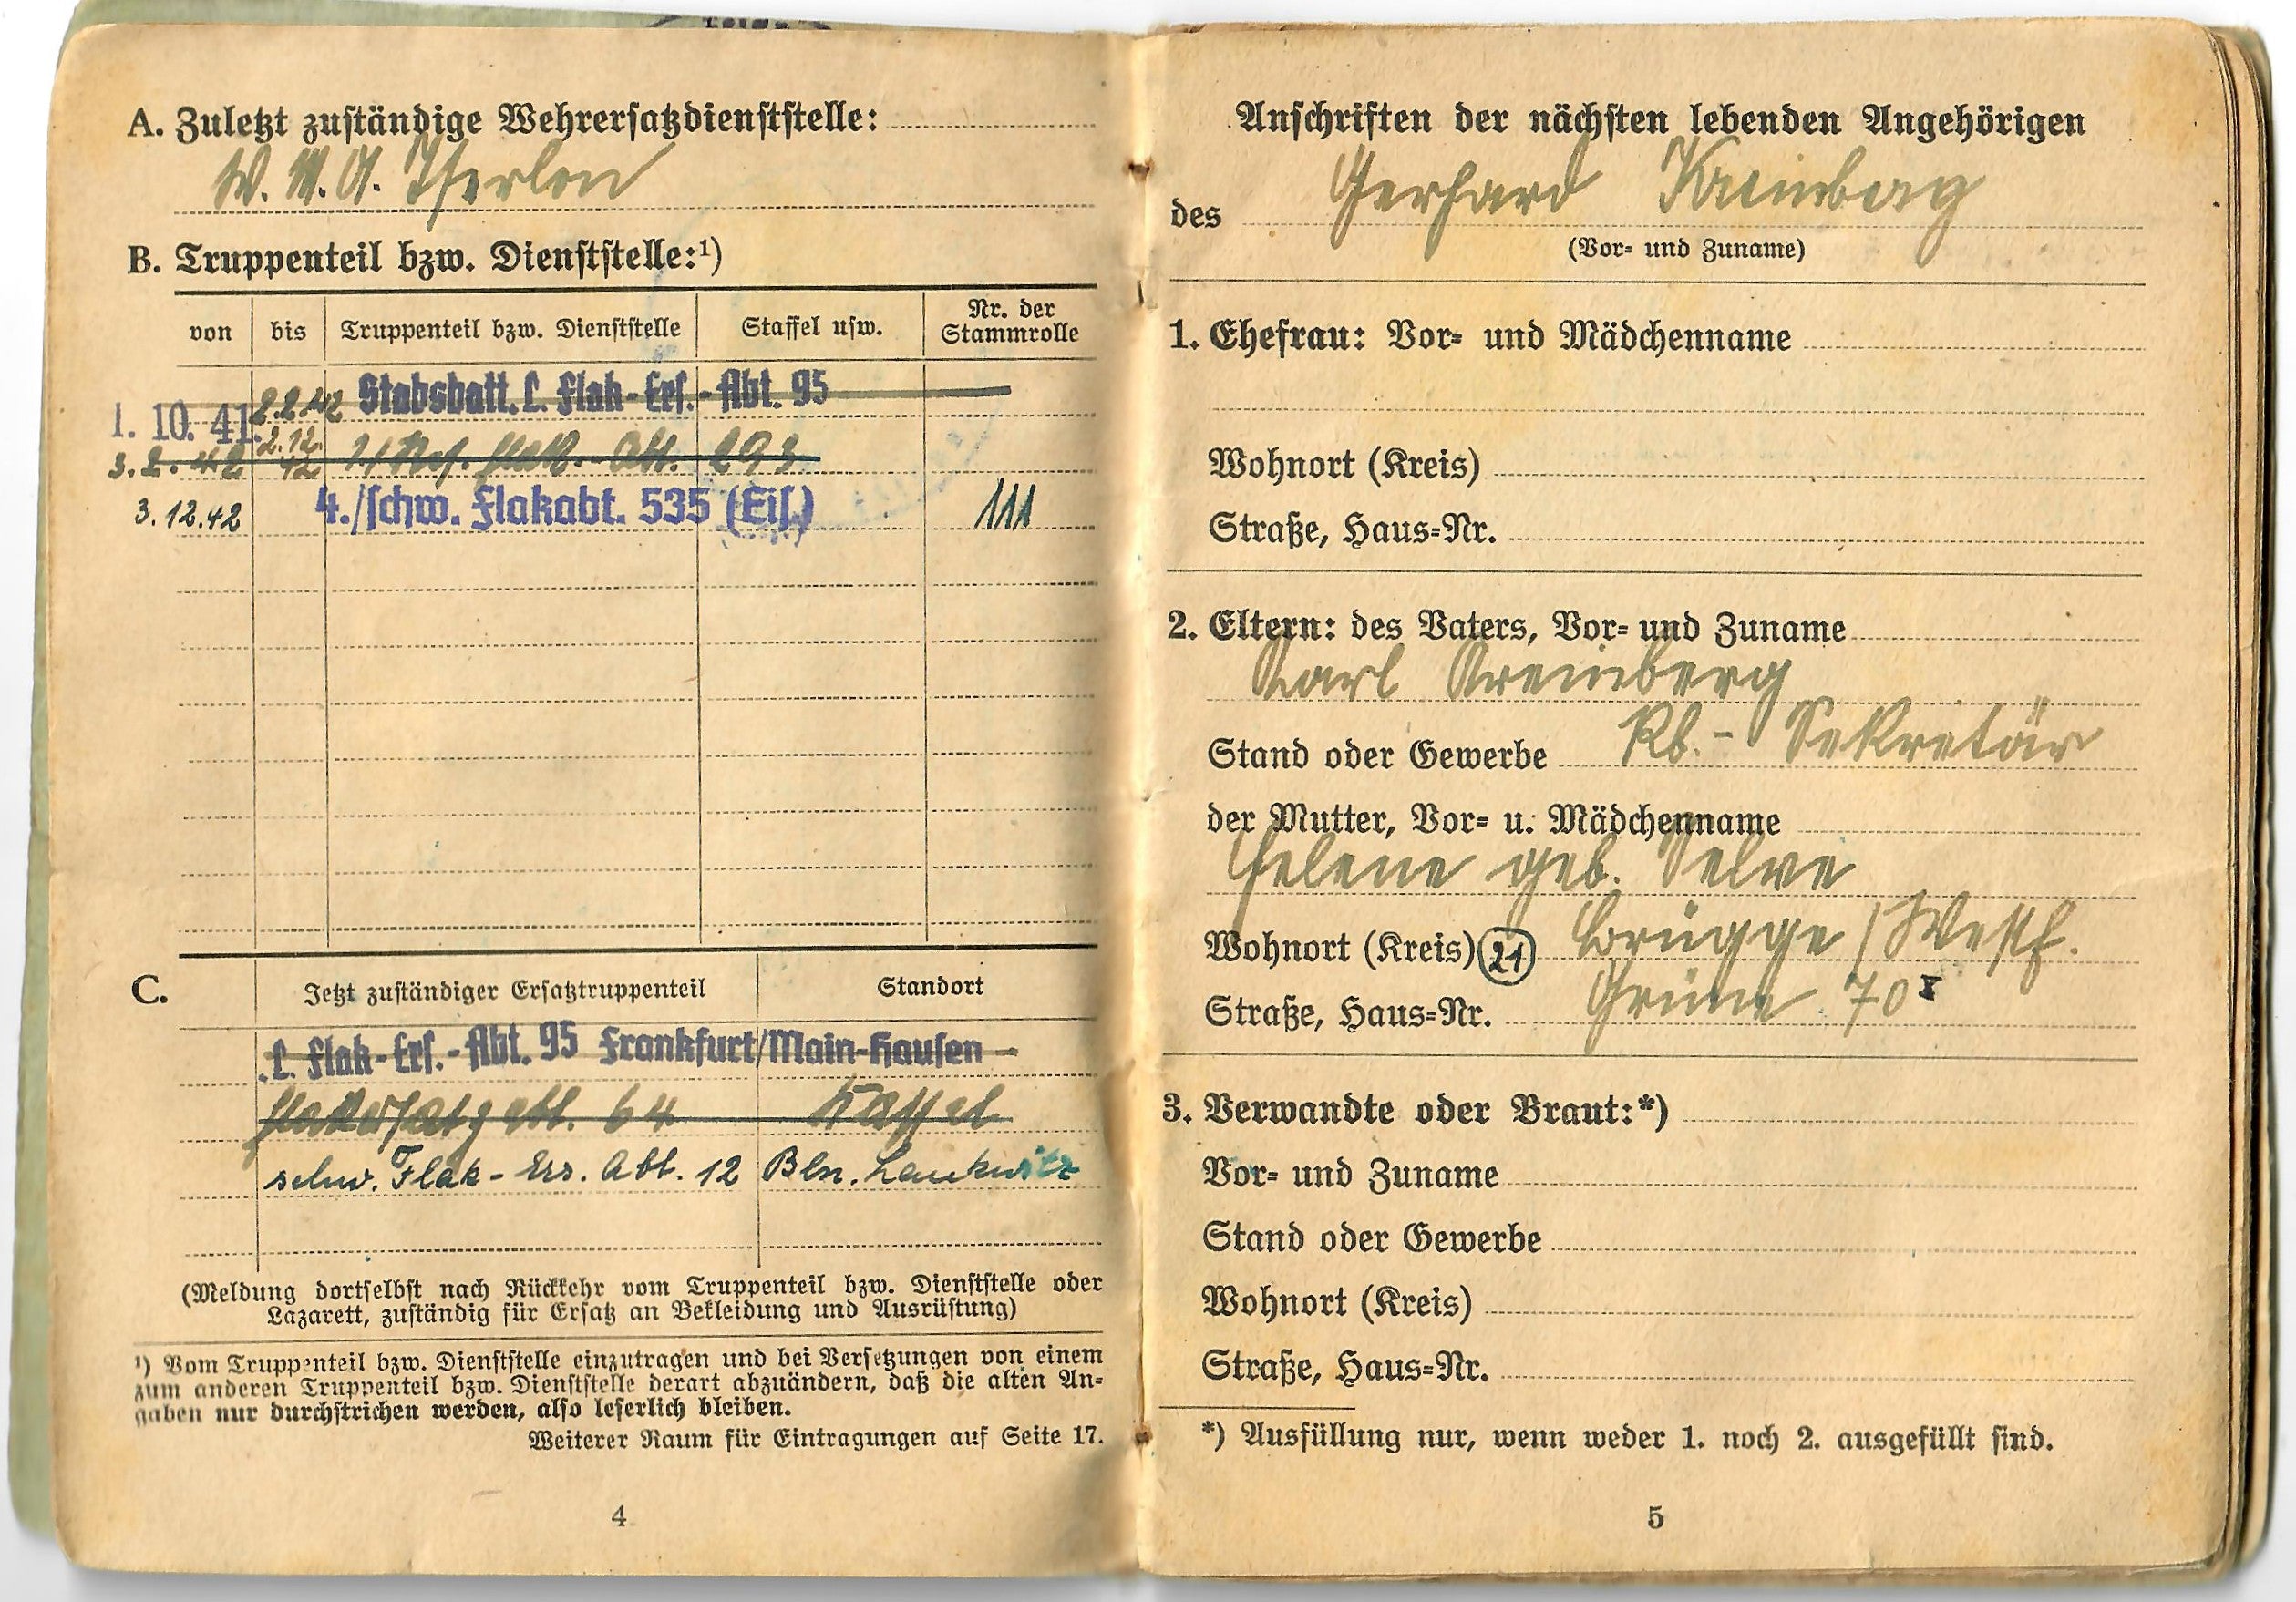 A. Zuletzt zuständige Wehrersatzdienststelle:
W. M. A. Iserlon
B. Truppenteil bzw. Dienststelle:¹)
von bis Truppenteil bzw. Dienststelle Staffel usw. Nr. der Stammrolle
1. 10. 41. 2.2.42 Stabsbatt. L. Flak-Ers.-Abt. 95
3. 2. 42 2.12. 42 Flak.-Abt. 293
3.12.42 4./schw. Flakabt. 535 (Eis.) 111
C. Jetzt zuständiger Ersatztruppenteil Standort
L. Flak-Ers.-Abt. 95 Frankfurt/Main-Hausen
Flakersatzabt. 64 Kassel
schw. Flak-Ers. Abt. 12 Bln. Lankwitz
(Meldung dortselbst nach Rückkehr vom Truppenteil bzw. Dienststelle oder
Lazarett, zuständig für Ersatz an Bekleidung und Ausrüstung)
¹) Vom Truppenteil bzw. Dienststelle einzutragen und bei Versetzungen von einem
zum anderen Truppenteil bzw. Dienststelle derart abzuändern, daß die alten An-
gaben nur durchstrichen werden, also leserlich bleiben.
Weiterer Raum für Eintragungen auf Seite 17.
4
Anschriften der nächsten lebenden Angehörigen
des Gerhard Kreinberg
(Vor- und Zuname)
1. Ehefrau: Vor- und Mädchenname
Wohnort (Kreis)
Straße, Haus-Nr.
2. Eltern: des Vaters, Vor- und Zuname
Karl Kreinberg
Stand oder Gewerbe Rb.- Sekretär
der Mutter, Vor- u. Mädchenname
Helene geb. Selve
Wohnort (Kreis) 21 Brügge / Westf.
Straße, Haus-Nr. Grüne 70
3. Verwandte oder Braut:*)
Vor- und Zuname
Stand oder Gewerbe
Wohnort (Kreis)
Straße, Haus-Nr.
*) Ausfüllung nur, wenn weder 1. noch 2. ausgefüllt sind.
5